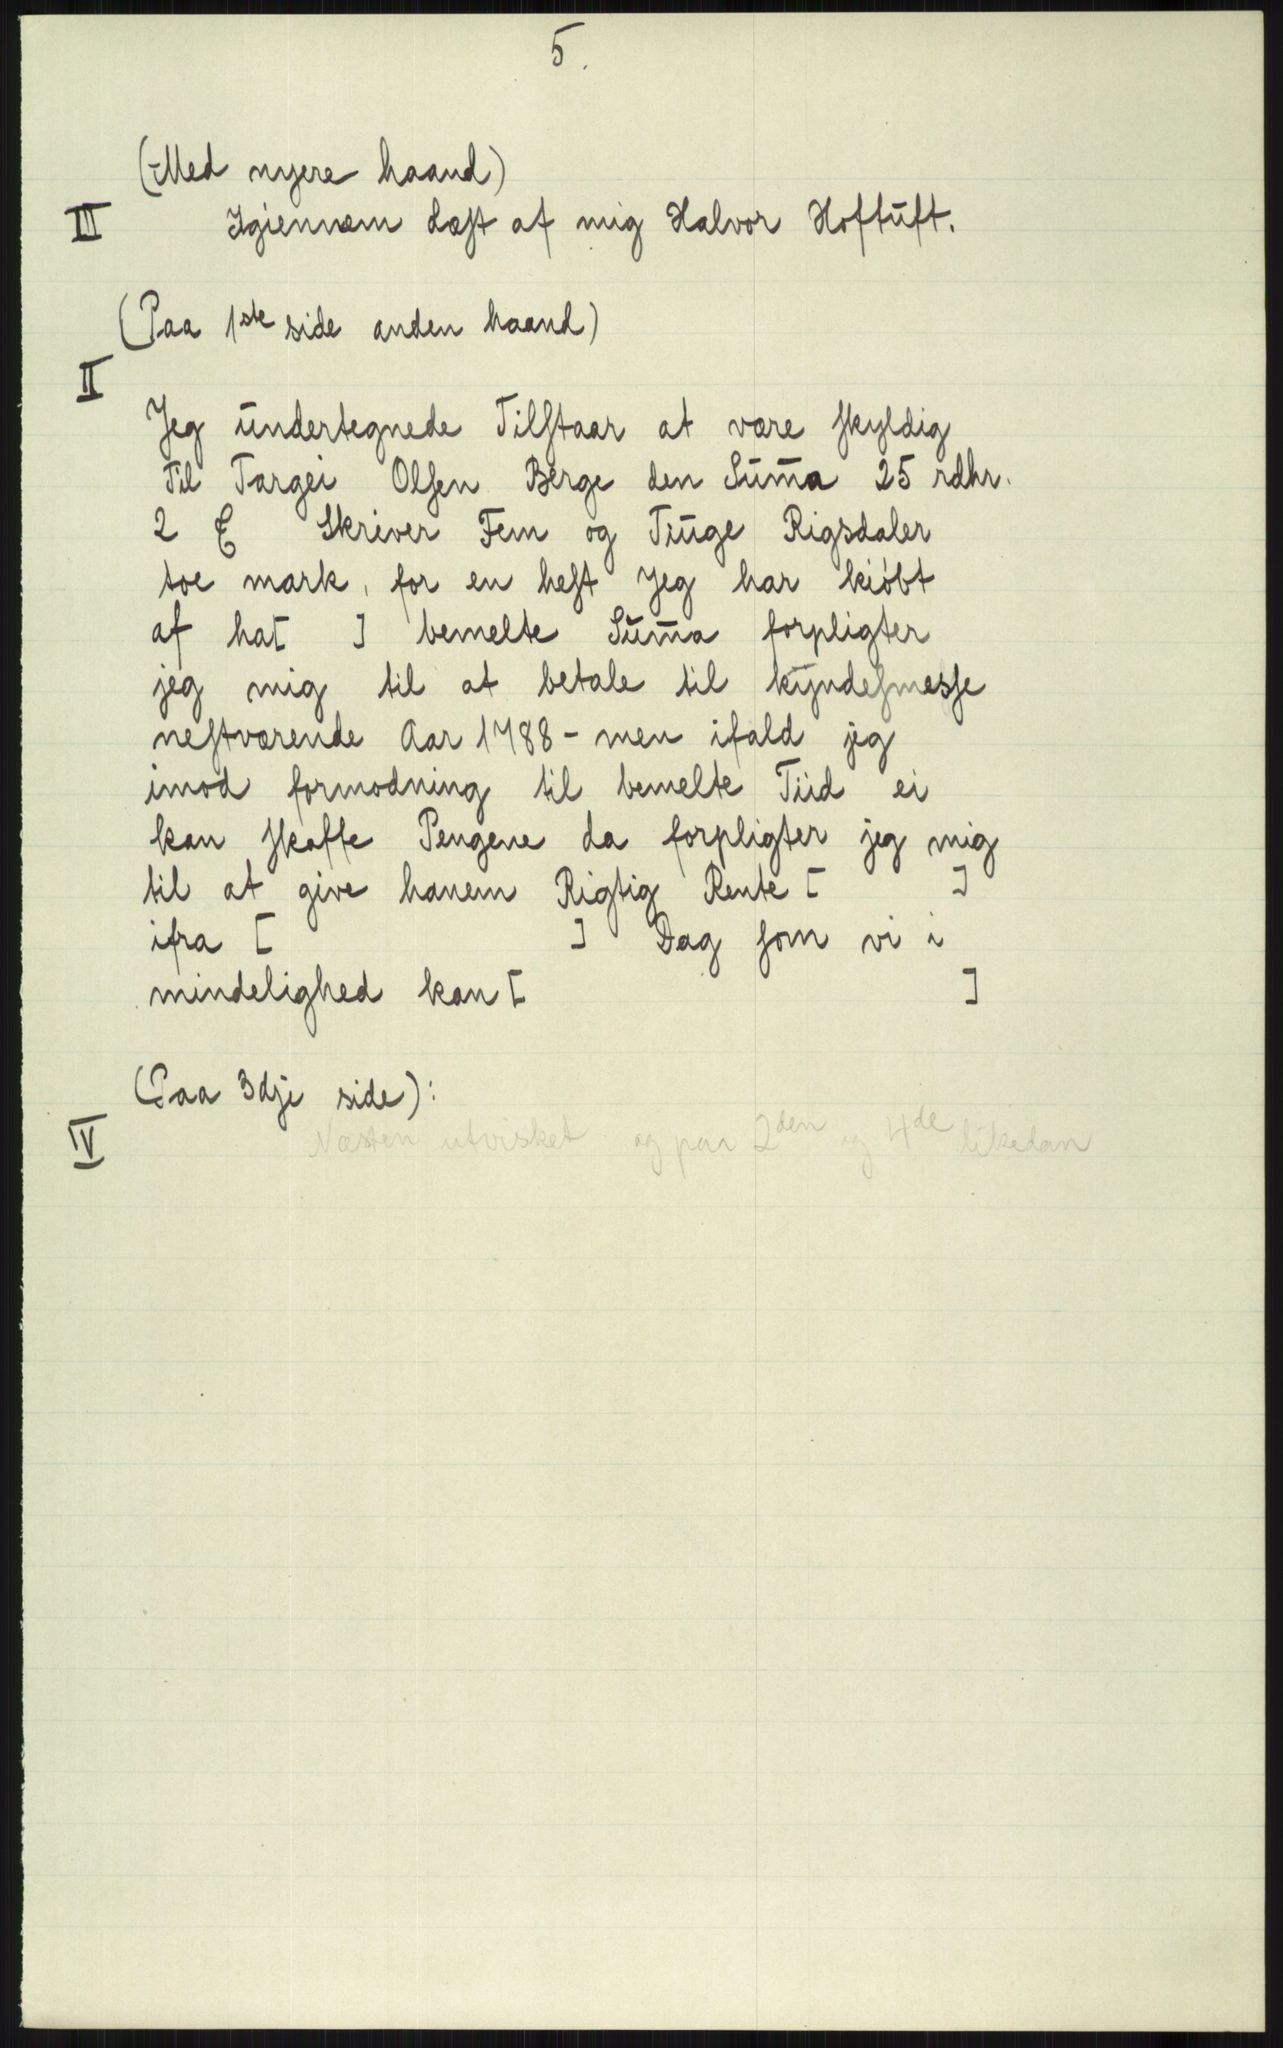 5.
(Med nyere haand)
III Igiennem Læst af mig Halvor Hoftuft.
(Paa 1ste side anden haand)
II
Jeg undertegnede Tilstaar at være skyldig
Til Targei Olsen Berge den Sum̄a 25 rdhr.
2 Skriver Fem og Tiuge Rigsdaler
toe mark, for en hest Jeg har kiøbt
af ha[ ] bemelte Sum̄a forpligter
jeg mig til at betale til kyndesmesse
nestværende Aar 1788 - men ifald jeg
imod formodning til bemelte Tiid ei
kan skaffe Pengene da forpligter jeg mig
til at give hanem Rigtig Rente [ ]
ifra [ ] Dag som vi i
mindelighed kan [ ]
(Paa 3dje side):
IV Næsten utvisket og paa 2den og 4de likedan